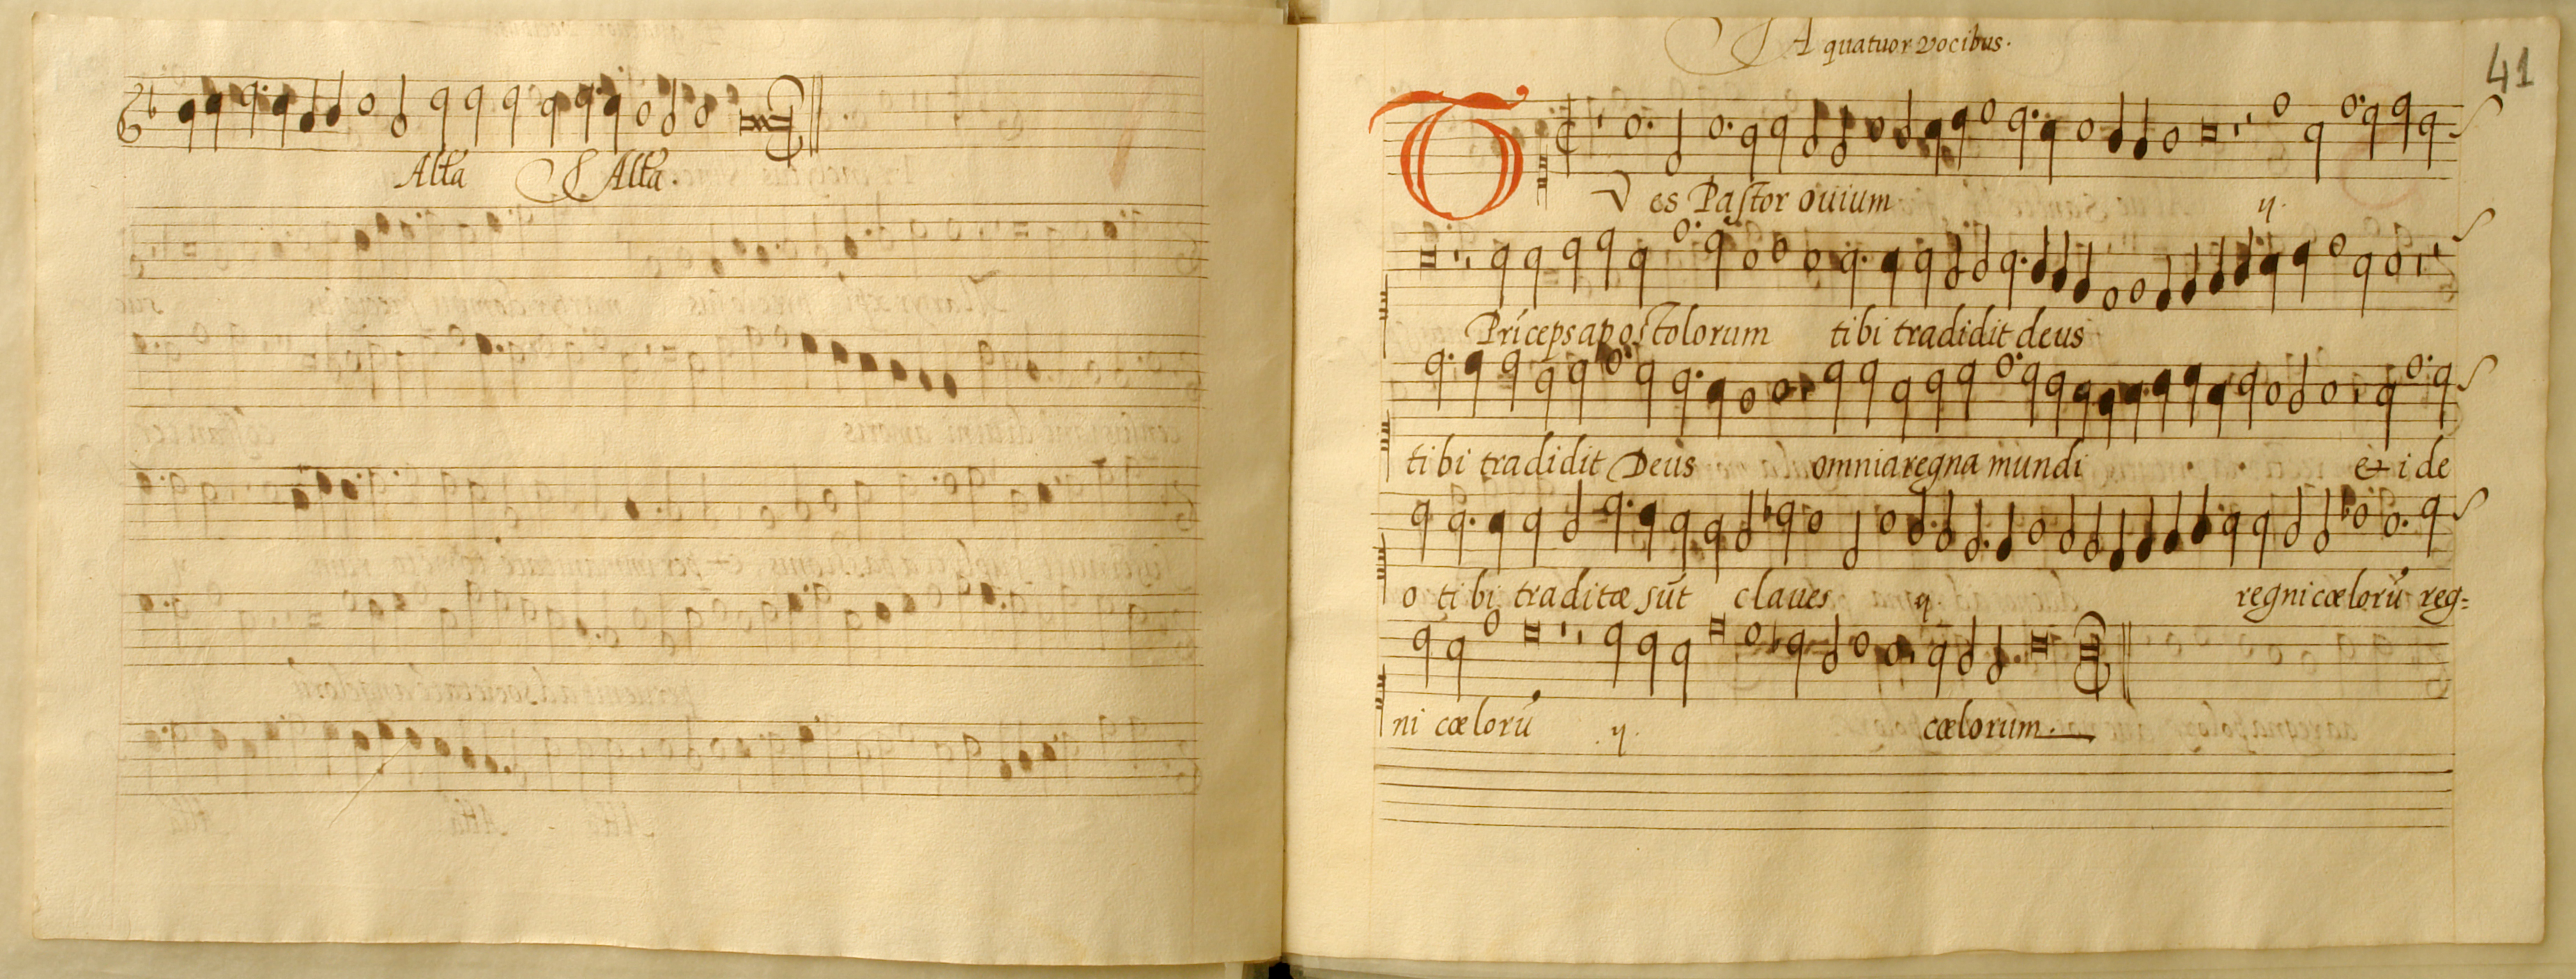 Alła Alła.
A quatuor vocibus.
41
TV es Pastor ouium ij.
Prīceps apostolorum tibi tradidit deus
tibi tradidit Deus omnia regna mundi & ide
o tibi traditæ sūt claues ij regni cœlorū reg=
ni cœlorū ij. cœlorum.